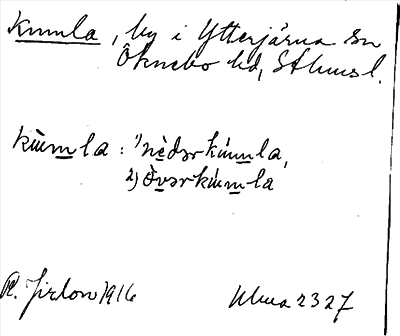 Kumla, by i Ytterjärna sn
Öknebo hd, Sthmsl.
kùmla: 1) nèdərkúmla,
2) òvərkúmla
R. Jirlow 1916